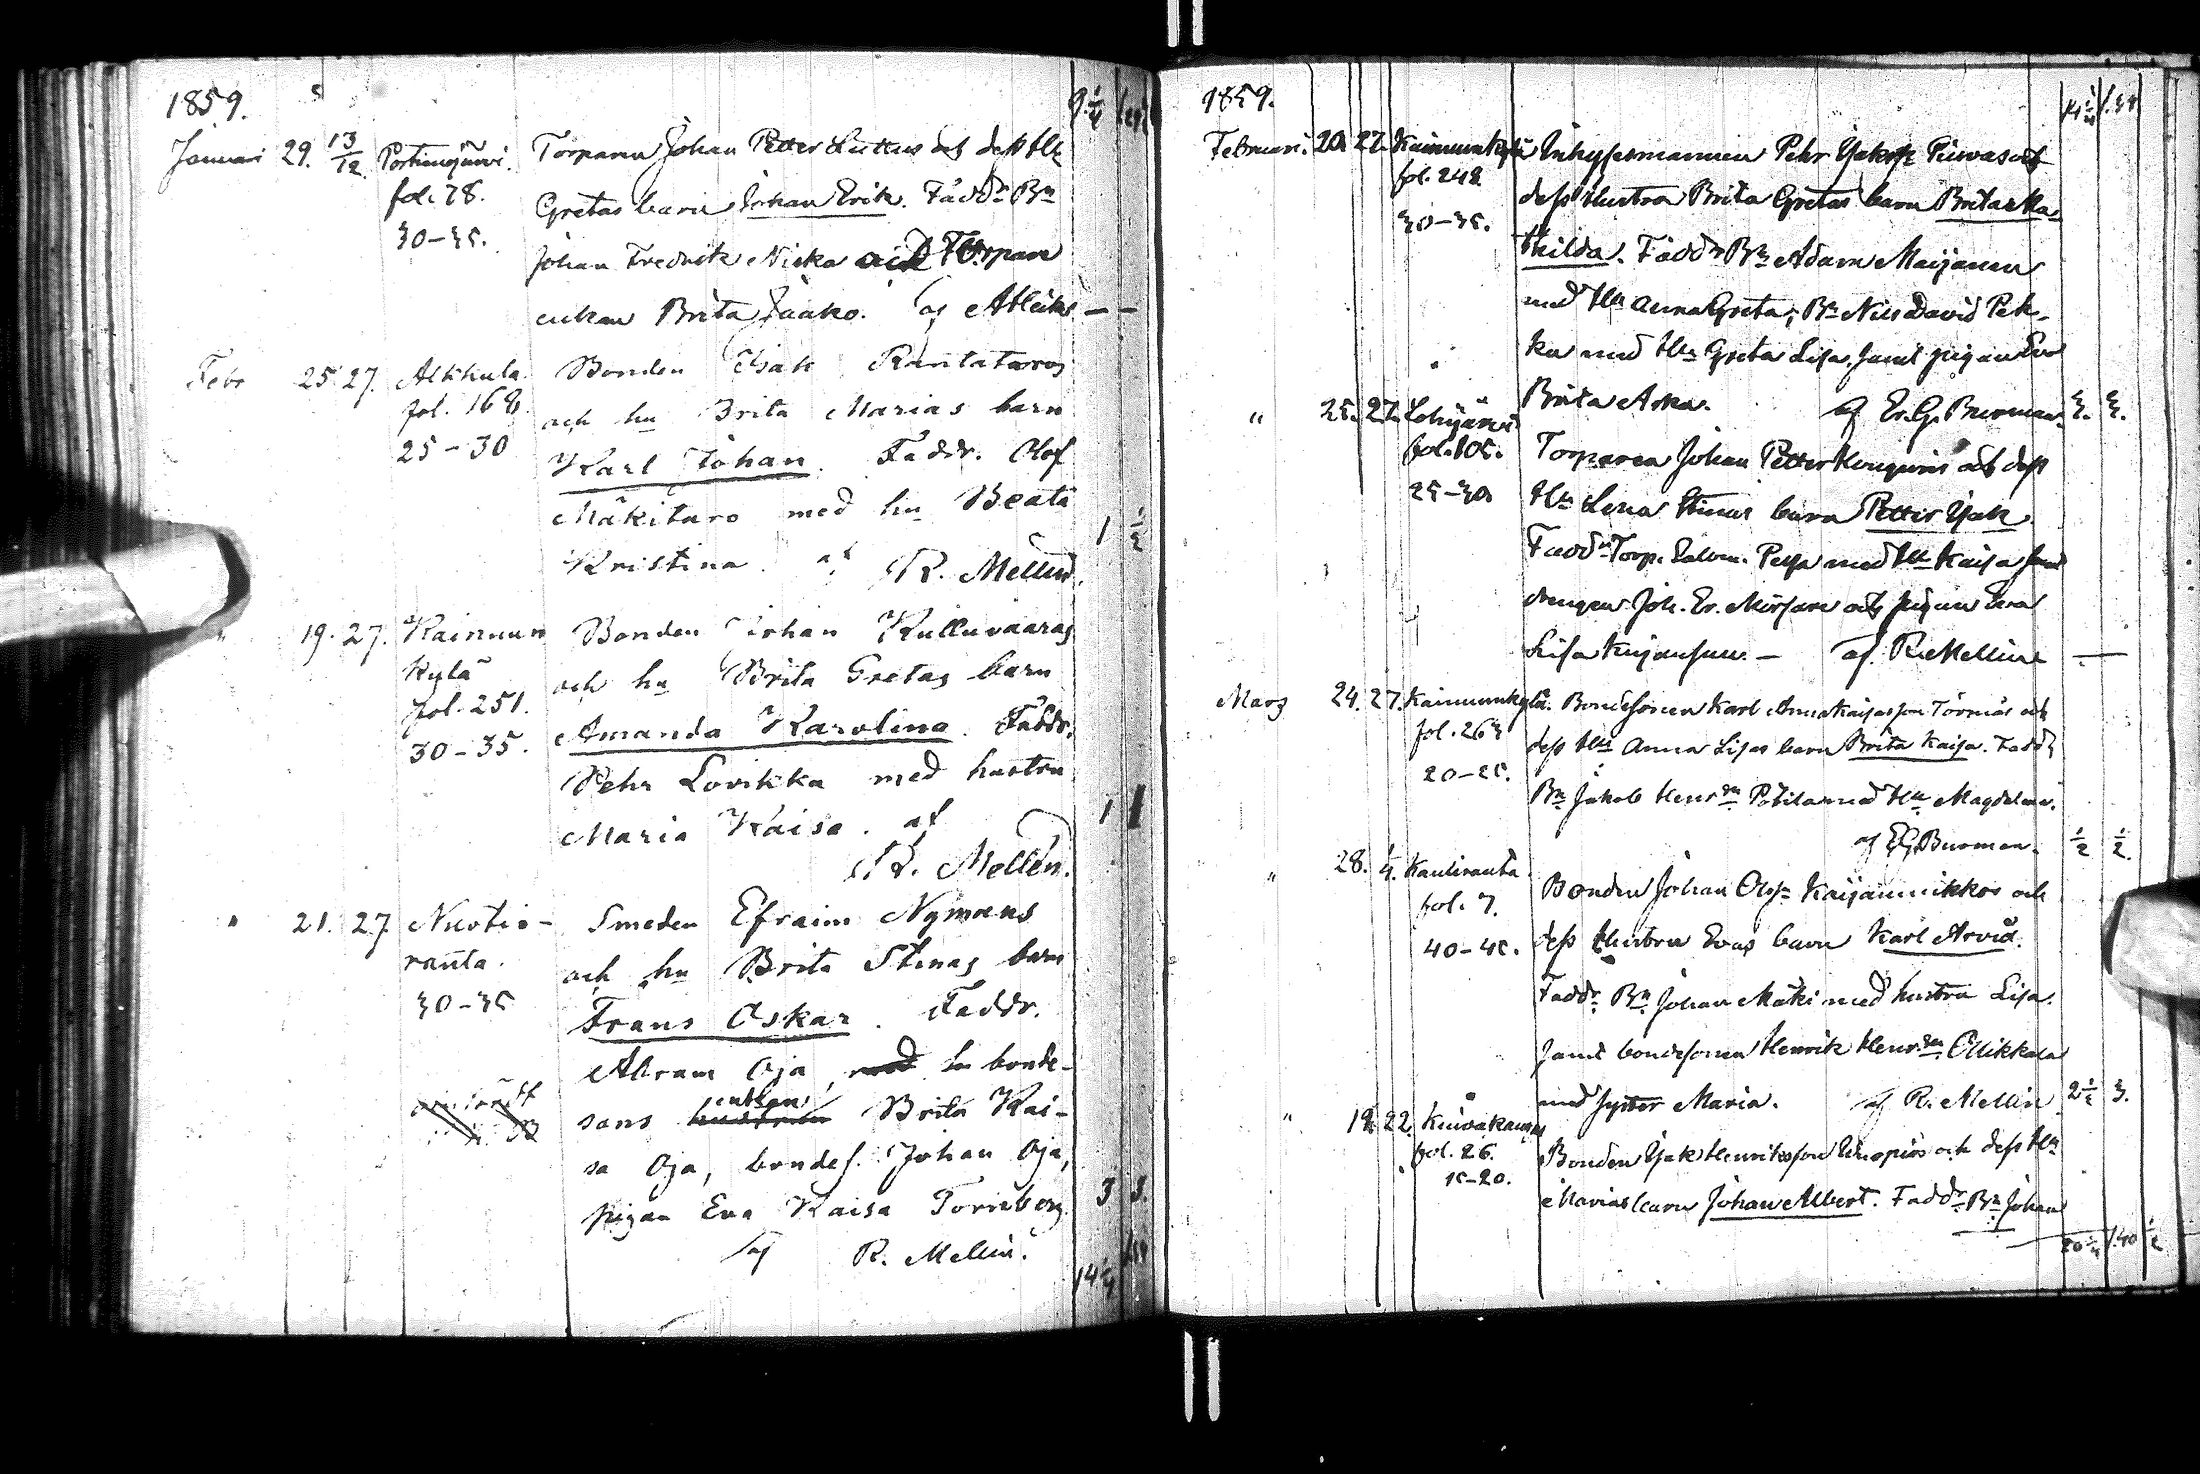 1859.
Januari 29. 13/12 Portimojärvi. Torparen Johan Petter
fol. 78. Gretas barn Johan Erik. Fadd. Bn
30-35. Johan Fredrik Niska och Torpare
enkan Brita Jaako. af
Febr 25. 27. Alkkula Bonden Isak Rantataros
fol. 168. och hu Brita Marias barn
25-30 Karl Johan. Faddr. Olof
Mäkitaro med hu Beata
Kristina. af R. Mellin. 1 1/2
" 19. 27. Kainuun Bonden Johan Kulluvaaras
kylä och hu Brita Gretas barn
fol. 251. Amanda Karolina. Faddr.
30-35. Pehr Lovikka med hustru
Maria Kaisa. af 1 1
R. Mellin.
" 21. 27 Nuotio- Smeden Efraim Nymans
ranta. och hu Brita Stinas barn
30-35 Frans Oskar. Faddr.
Abram Oja, med hu bonde-
sons hustrun enkan Brita Kai-
sa Oja, bondes. Johan Oja,
pigan Eva Kaisa Tornberg 3 3.
af R. Mellin.
14 1/4
1859.
Februari. 20. 27. Kainuunkylä Inhysesmannen Pehr
fol. 248 dess Hustru Brita Gretas barn Brita Ma-
30-35. thilda. Fadd. Bn Adam Maijanen
med Hu Anna Greta, Bn Nils David Pek-
ka med Hu Greta Lisa, samt pigan Eva
Brita Aska. af Er. G. Burman. 3. 3.
" 25. 27. Lohijärvi
fol. 105. Torparen Johan Petter och dess
25-30 Hu Lena Stinas barn Petter Isak.
Fadd. Torp. med Hu Kaisa samt
drengen Joh. Er. och pigan Eva
Lisa af R. Mellin —
Mars 24. 27. Kainuunkylä. Bondesonen Karl Annakaisasson Törmäs och
fol. 263 dess Hu Anna Lisas barn Brita Kaisa. Fadd.
20-25. Bn Jakob Henrsn med Hu Magdalena.
af E.G. Burman. 1/2 1/2.
" 28. 4. Kauliranta
fol. 7. Bonden Johan Olofs. Kaijannikkos och
40-45. dess Hustru Evas barn Karl Arvid.
Faddr. Bn Johan Mäki med hustru Lisa.
samt bondesonen Henrik Henrsn Ollikkala
med syster Maria. af R. Mellin 2 1/2 3.
" 19. 22. Kuivakangas
fol. 26. Bonden Isak Henriksson och dess Hu
15-20. Marias barn Johan Albert. Faddr. Bn Johan
20 1/4 1.40 1/2